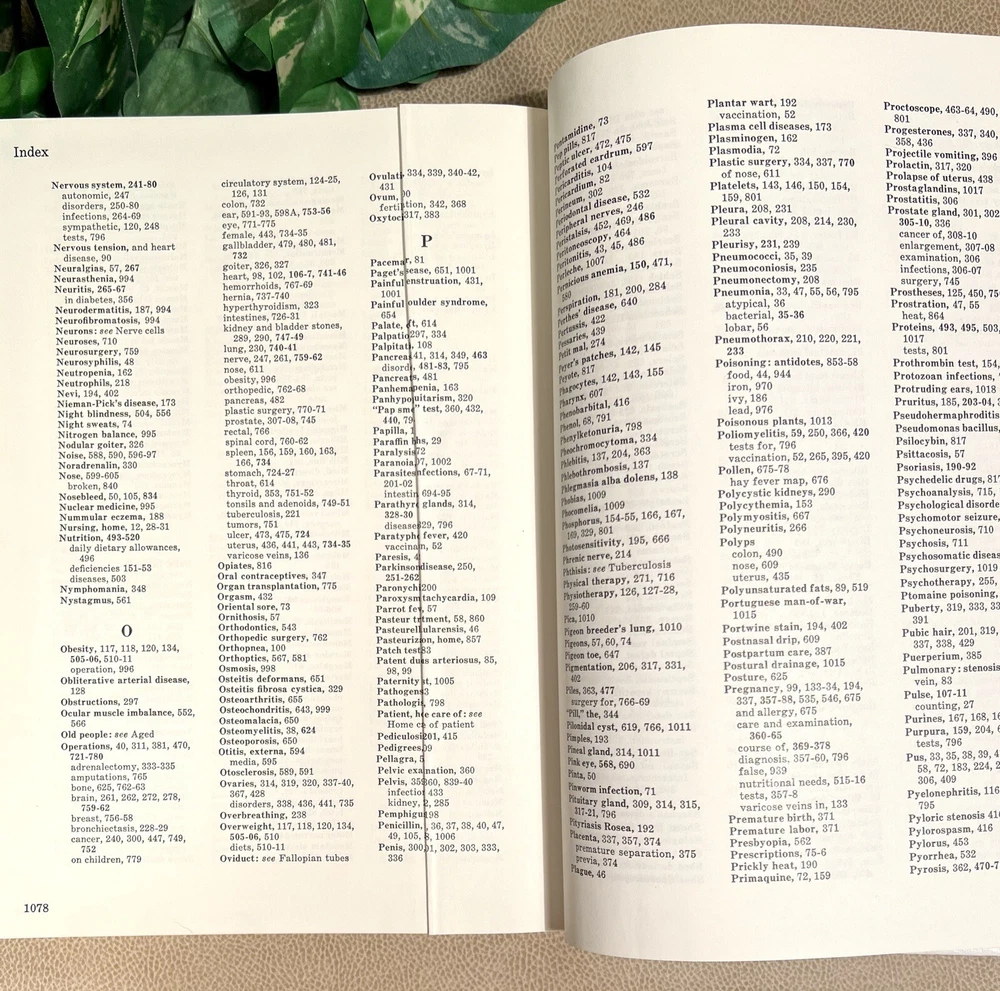 Index
Nervous system, 241-80
autonomic, 247
disorders, 250-80
infections, 264-69
sympathetic, 120, 248
tests, 796
Nervous tension, and heart
disease, 90
Neuralgias, 57, 267
Neurasthenia, 994
Neuritis, 265-67
in diabetes, 356
Neurodermatitis, 187, 994
Neurofibromatosis, 994
Neurons: see Nerve cells
Neuroses, 710
Neurosurgery, 759
Neurosyphilis, 48
Neutropenia, 162
Neutrophils, 218
Nevi, 194, 402
Nieman-Pick's disease, 173
Night blindness, 504, 556
Night sweats, 74
Nitrogen balance, 995
Nodular goiter, 326
Noise, 588, 590, 596-97
Noradrenalin, 330
Nose, 599-605
broken, 840
Nosebleed, 50, 105, 834
Nuclear medicine, 995
Nummular eczema, 188
Nursing, home, 12, 28-31
Nutrition, 493-520
daily dietary allowances,
496
deficiencies 151-53
diseases, 503
Nymphomania, 348
Nystagmus, 561
O
Obesity, 117, 118, 120, 134,
505-06, 510-11
operation, 996
Obliterative arterial disease,
128
Obstructions, 297
Ocular muscle imbalance, 552,
566
Old people: see Aged
Operations, 40, 311, 381, 470,
721-780
adrenalectomy, 333-335
amputations, 765
bone, 625, 762-63
brain, 261, 262, 272, 278,
759-62
breast, 756-58
bronchiectasis, 228-29
cancer, 240, 300, 447, 749,
752
on children, 779
circulatory system, 124-25,
126, 131
colon, 732
ear, 591-93, 598A, 753-56
eye, 771-775
female, 443, 734-35
gallbladder, 479, 480, 481,
732
goiter, 326, 327
heart, 98, 102, 106-7, 741-46
hemorrhoids, 767-69
hernia, 737-740
hyperthyroidism, 323
intestines, 726-31
kidney and bladder stones,
289, 290, 747-49
lung, 230, 740-41
nerve, 247, 261, 759-62
nose, 611
obesity, 996
orthopedic, 762-68
pancreas, 482
plastic surgery, 770-71
prostate, 307-08, 745
rectal, 766
spinal cord, 760-62
spleen, 156, 159, 160, 163,
166, 734
stomach, 724-27
throat, 614
thyroid, 353, 751-52
tonsils and adenoids, 749-51
tuberculosis, 221
tumors, 751
ulcer, 473, 475, 724
uterus, 436, 441, 443, 734-35
varicose veins, 136
Opiates, 816
Oral contraceptives, 347
Organ transplantation, 775
Orgasm, 432
Oriental sore, 73
Ornithosis, 57
Orthodontics, 543
Orthopedic surgery, 762
Orthopnea, 100
Orthoptics, 567, 581
Osmosis, 998
Osteitis deformans, 651
Osteitis fibrosa cystica, 329
Osteoarthritis, 655
Osteochondritis, 643, 999
Osteomalacia, 650
Osteomyelitis, 38, 624
Osteoporosis, 650
Otitis, externa, 594
media, 595
Otosclerosis, 589, 591
Ovaries, 314, 319, 320, 337-40,
367, 428
disorders, 338, 436, 441, 735
Overbreathing, 238
Overweight, 117, 118, 120, 134,
505-06, 510
diets, 510-11
Oviduct: see Fallopian tubes
334, 339, 340-42,
431
Ovum,
342, 368
317, 383
P
81
651, 1001
Painful 431,
1001
Painful syndrome,
654
Palate, 614
297, 334
108
41, 314, 349, 463
481-83, 795
481
163
320
"Pap test, 360, 432,
440,
Papilla,
Paraffin 29
72
1002
67-71,
201-02
694-95
glands, 314,
328-30
796
fever, 420
52
Paresis,
disease, 250,
251-262
200
tachycardia, 109
Parrot 57
Pasteur 58, 860
46
home, 857
Patch
Patent arteriosus, 85,
98, 99
1005
798
Patient, care of: see
Home of patient
415
Pellagra,
Pelvic 360
Pelvis, 839-40
433
kidney, 285
Penicillin, 36, 37, 38, 40, 47,
49, 105, 1006
Penis, 302, 303, 333,
336
1078
73
817
ulcer, 472, 475
Perforated eardrum, 597
Pericarditis, 104
Pericardium, 82
Perineum, 302
Periodontal disease, 532
Peripheral nerves, 246
Peristalsis, 452, 469, 486
Peritoneoscopy, 464
Peritonitis, 43, 45, 486
Perleche, 1007
Pernicious anemia, 150, 471,
580
Perspiration, 181, 200, 284
Perthes' disease, 640
Pertussis, 422
Pessaries, 439
Petit mal, 274
Peyer's patches, 142, 145
Peyote, 817
Phagocytes, 142, 143, 155
Pharynx, 607
Phenobarbital, 416
Phenol, 68, 791
Phenylketonuria, 798
Pheochromocytoma, 334
Phlebitis, 137, 204, 363
Phlebothrombosis, 137
Phlegmasia alba dolens, 138
Phobias, 1009
Phocomelia, 1009
Phosphorus, 154-55, 166, 167,
169, 329, 801
Photosensitivity, 195, 666
Phrenic nerve, 214
Phthisis: see Tuberculosis
Physical therapy, 271, 716
Physiotherapy, 126, 127-28,
259-60
Pica, 1010
Pigeon breeder's lung, 1010
Pigeons, 57, 60, 74
Pigeon toe, 647
Pigmentation, 206, 317, 331,
402
Piles, 363, 477
surgery for, 766-69
"Pill," the, 344
Pilonidal cyst, 619, 766, 1011
Pimples, 193
Pineal gland, 314, 1011
Pink eye, 568, 690
Pinta, 50
Pinworm infection, 71
Pituitary gland, 309, 314, 315,
317-21, 796
Pityriasis Rosea, 192
Placenta, 337, 357, 374
premature separation, 375
previa, 374
Plague, 46
Plantar wart, 192
vaccination, 52
Plasma cell diseases, 173
Plasminogen, 162
Plasmodia, 72
Plastic surgery, 334, 337, 770
of nose, 611
Platelets, 143, 146, 150, 154,
159, 801
Pleura, 208, 231
Pleural cavity, 208, 214, 230,
233
Pleurisy, 231, 239
Pneumococci, 35, 39
Pneumoconiosis, 235
Pneumonectomy, 208
Pneumonia, 33, 47, 55, 56, 795
atypical, 36
bacterial, 35-36
lobar, 56
Pneumothorax, 210, 220, 221,
233
Poisoning: antidotes, 853-58
food, 44, 944
iron, 970
ivy, 186
lead, 976
Poisonous plants, 1013
Poliomyelitis, 59, 250, 366, 420
tests for, 796
vaccination, 52, 265, 395, 420
Pollen, 675-78
hay fever map, 676
Polycystic kidneys, 290
Polycythemia, 153
Polymyositis, 667
Polyneuritis, 266
Polyps
colon, 490
nose, 609
uterus, 435
Polyunsaturated fats, 89, 519
Portuguese man-of-war,
1015
Portwine stain, 194, 402
Postnasal drip, 609
Postpartum care, 387
Postural drainage, 1015
Posture, 625
Pregnancy, 99, 133-34, 194,
337, 357-88, 535, 546, 675
and allergy, 675
care and examination,
360-65
course of, 369-378
diagnosis. 357-60, 796
false, 939
nutritional needs, 515-16
tests, 357-8
varicose veins in, 133
Premature birth, 371
Premature labor, 371
Presbyopia, 562
Prescriptions, 75-6
Prickly heat, 190
Primaquine, 72, 159
Proctoscope, 463-64, 490,
801
Progesterones, 337, 340,
358, 436
Projectile vomiting, 396
Prolactin, 317, 320
Prolapse of uterus, 438
Prostaglandins, 1017
Prostatitis, 306
Prostate gland, 301, 302
305-10, 336
cancer of, 308-10
enlargement, 307-08
examination, 306
infections, 306-07
surgery, 745
Prostheses, 125, 450,
Prostration, 47, 55
heat, 864
Proteins, 493, 495, 503,
1017
tests, 801
Prothrombin test, 154,
Protozoan infections,
Protruding ears, 1018
Pruritus, 185, 203-04,
Pseudohermaphroditi
Pseudomonas bacillus,
Psilocybin, 817
Psittacosis, 57
Psoriasis, 190-92
Psychedelic drugs,
Psychoanalysis, 715,
Psychological disorde
Psychomotor seizure,
Psychoneurosis, 710
Psychosis, 711
Psychosomatic diseas
Psychosurgery, 1019
Psychotherapy, 255,
Ptomaine poisoning,
Puberty, 319, 333,
391
Pubic hair, 201, 319,
337, 338, 429
Puerperium, 385
Pulmonary: stenosis
vein, 83
Pulse, 107-11
counting, 27
Purines, 167, 168,
Purpura, 159, 204,
tests, 796
Pus, 33, 35, 38, 39,
58, 72, 183, 224,
306, 409
Pyelonephritis, 116
795
Pyloric stenosis
Pylorospasm, 416
Pylorus, 453
Pyorrhea, 532
Pyrosis, 362,